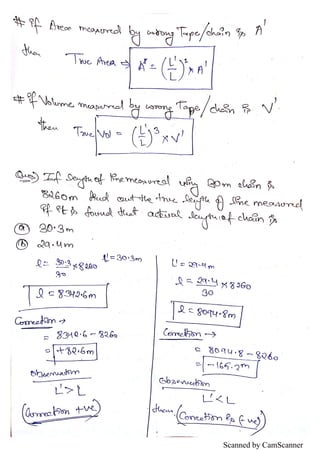 # If Area measured by wrong Tape/chain is A'
then
True Area → A = (L'/L)² × A'
# If Volume measured by wrong Tape/chain is V'
then True Vol = (L'/L)³ × V'
Ques) If length of line measured using 30m chain is
8260m find out the true length of line measured
if it is found that actual length of chain is
(a) 30.3m
(b) 29.4m
L' = 30.3m
l = 30.3/30 × 8260
l = 8342.6m
Correction →
= 8342.6 - 8260
= +82.6m
Observation
L' > L
(Correction +ve)
L' = 29.4m
l = 29.4/30 × 8260
l = 8094.8m
Correction →
= 8094.8 - 8260
= -165.2m
Observation
L' < L
then (Correction is (-ve))
Scanned by CamScanner